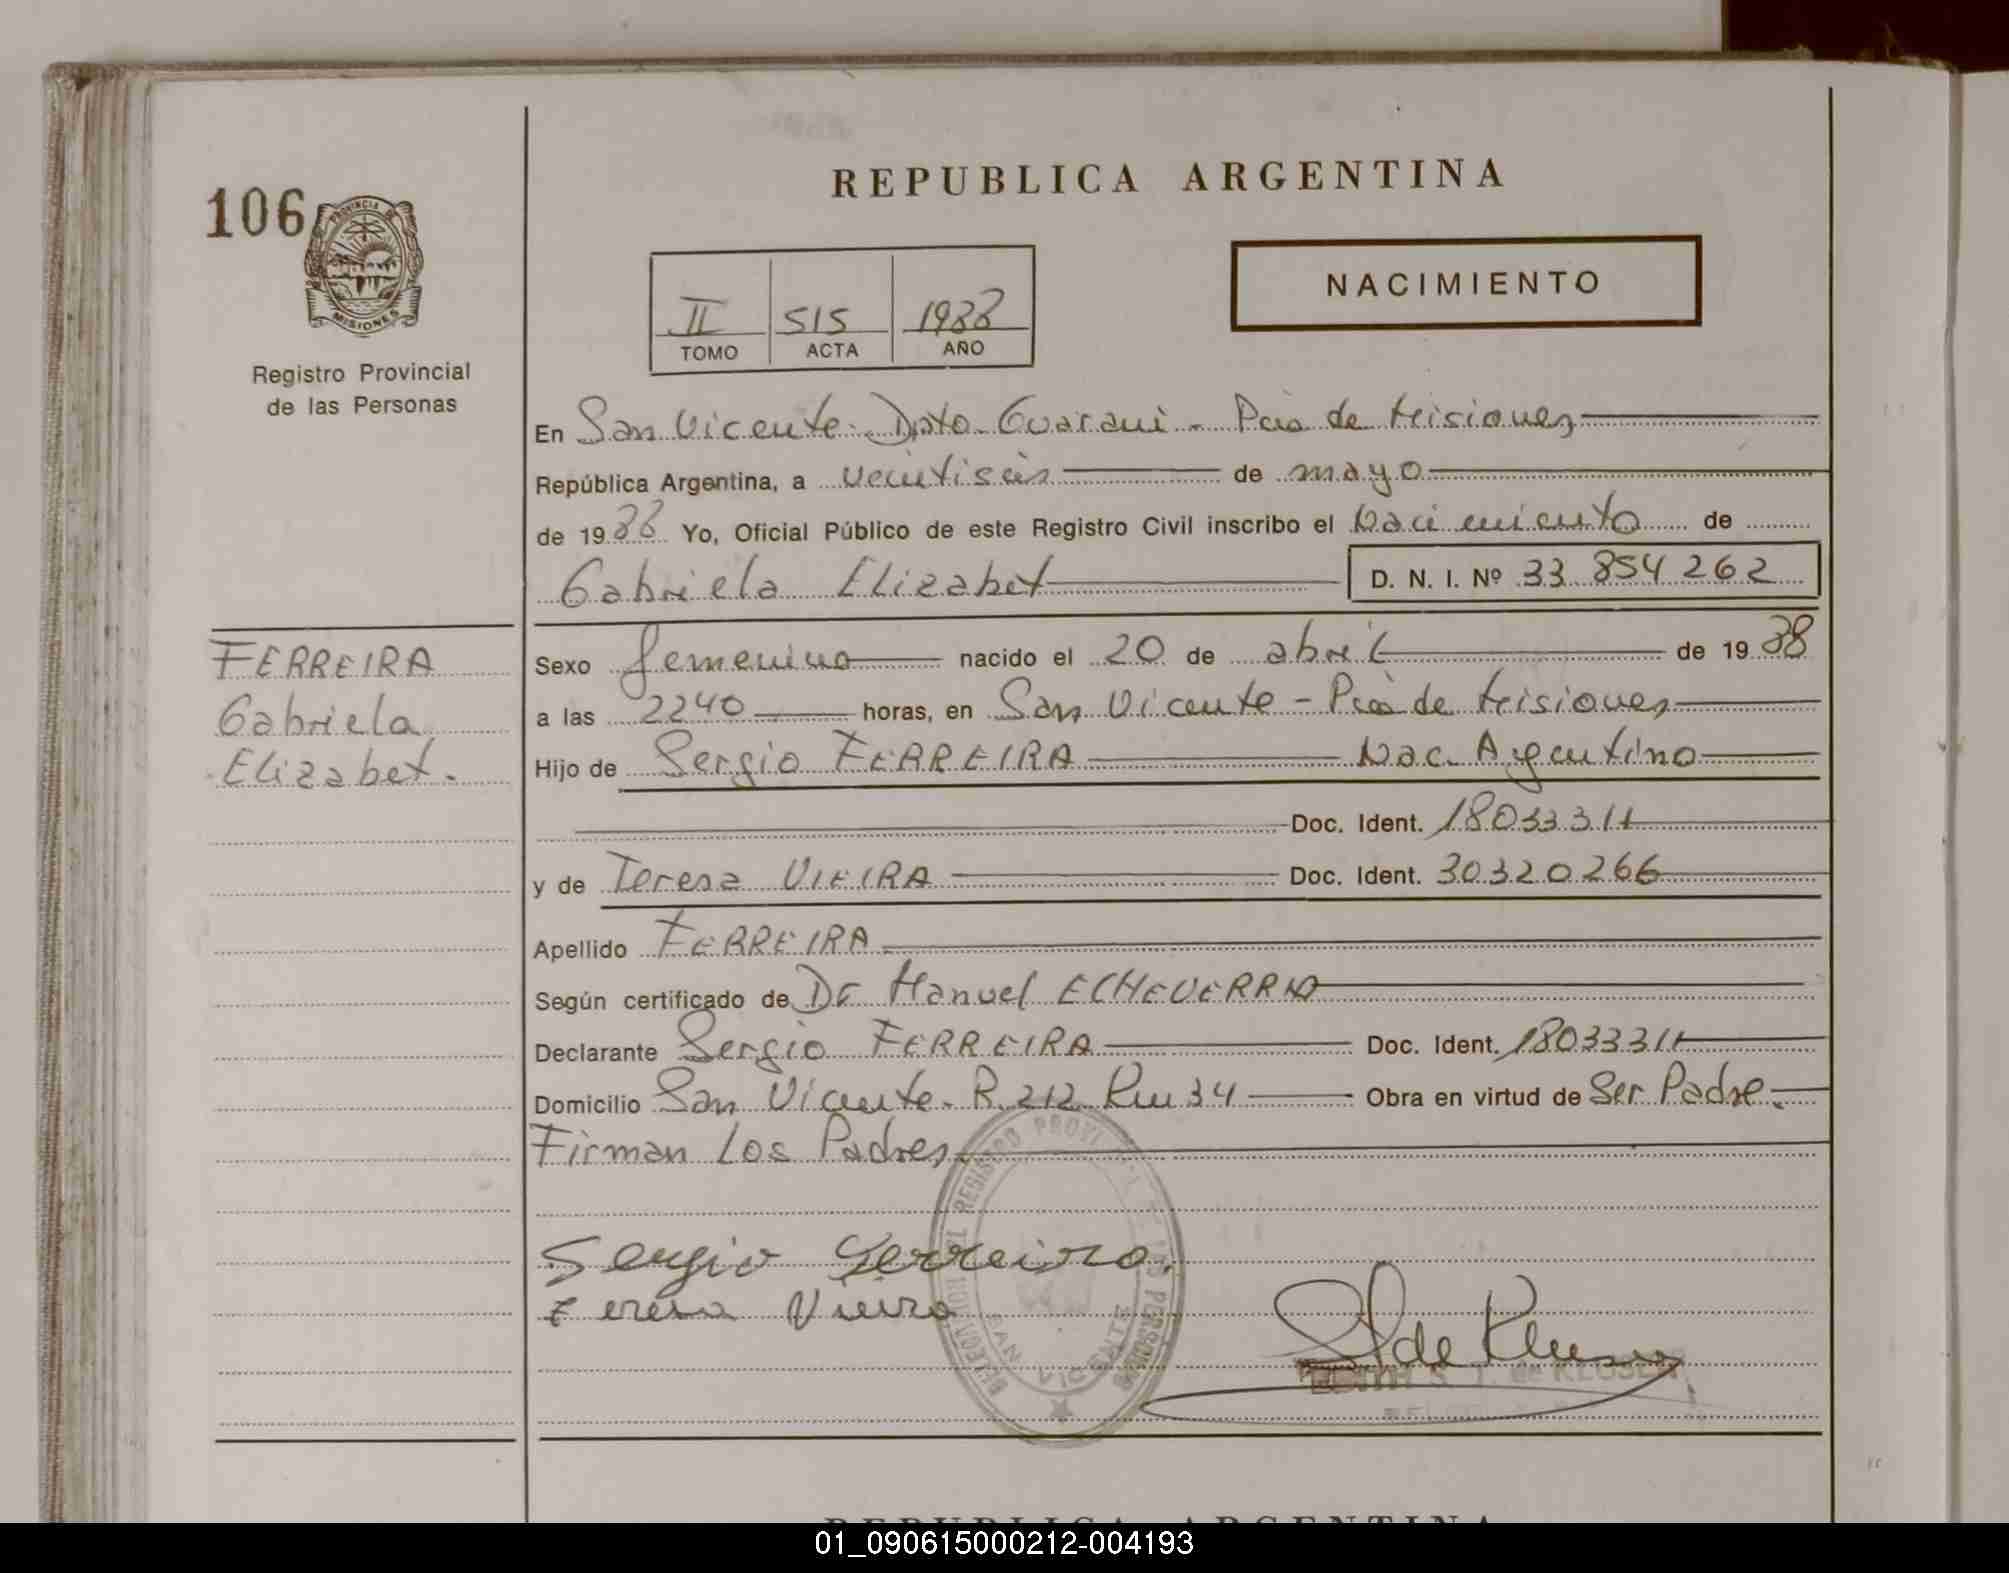 REPUBLICA ARGENTINA
106
PROVINCIA DE
MISIONES
Registro Provincial
de las Personas
II 515 1988
TOMO ACTA AÑO
NACIMIENTO
En San Vicente - Dpto. Guarani - Pcia de Misiones
República Argentina, a veintiseis de mayo
de 1988 Yo, Oficial Público de este Registro Civil inscribo el Nacimiento de
Gabriela Elizabet D. N. I. Nº 33 854 262
FERREIRA
Gabriela
Elizabet.
Sexo femenino nacido el 20 de abril de 1988
a las 2240 horas, en San Vicente - Pcia de Misiones
Hijo de Sergio FERREIRA Nac. Argentino
Doc. Ident. 18033311
y de Teresa VIEIRA Doc. Ident. 30320266
Apellido FERREIRA
Según certificado de Dr Manuel ECHEVERRIA
Declarante Sergio FERREIRA Doc. Ident. 18033311
Domicilio San Vicente - R. 212 Km 34 Obra en virtud de Ser Padre.
Firman Los Padres
Sergio Ferreira.
Teresa Vieira
REGISTRO PROVINCIAL DE LAS PERSONAS
SAN VICENTE
S. T. de KLUSENER
REPUBLICA ARGENTINA
01_090615000212-004193